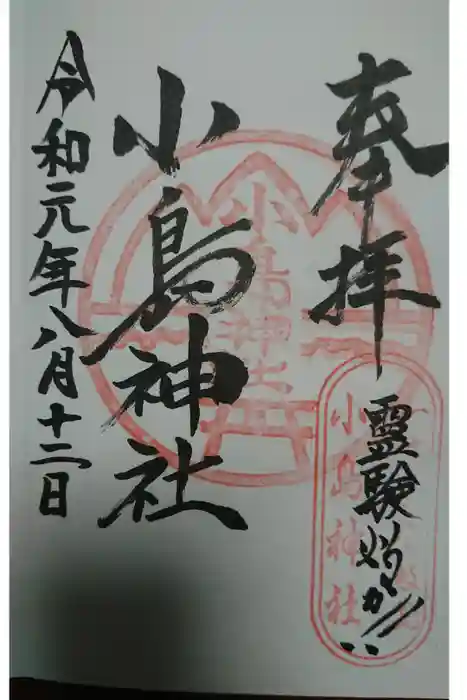 奉拝
霊験灼か!!
小島神社
小島神社
小島神社
令和元年八月十二日